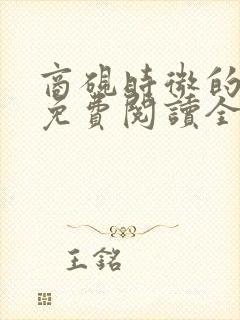 商硯時微的
免費閱讀全
王銘